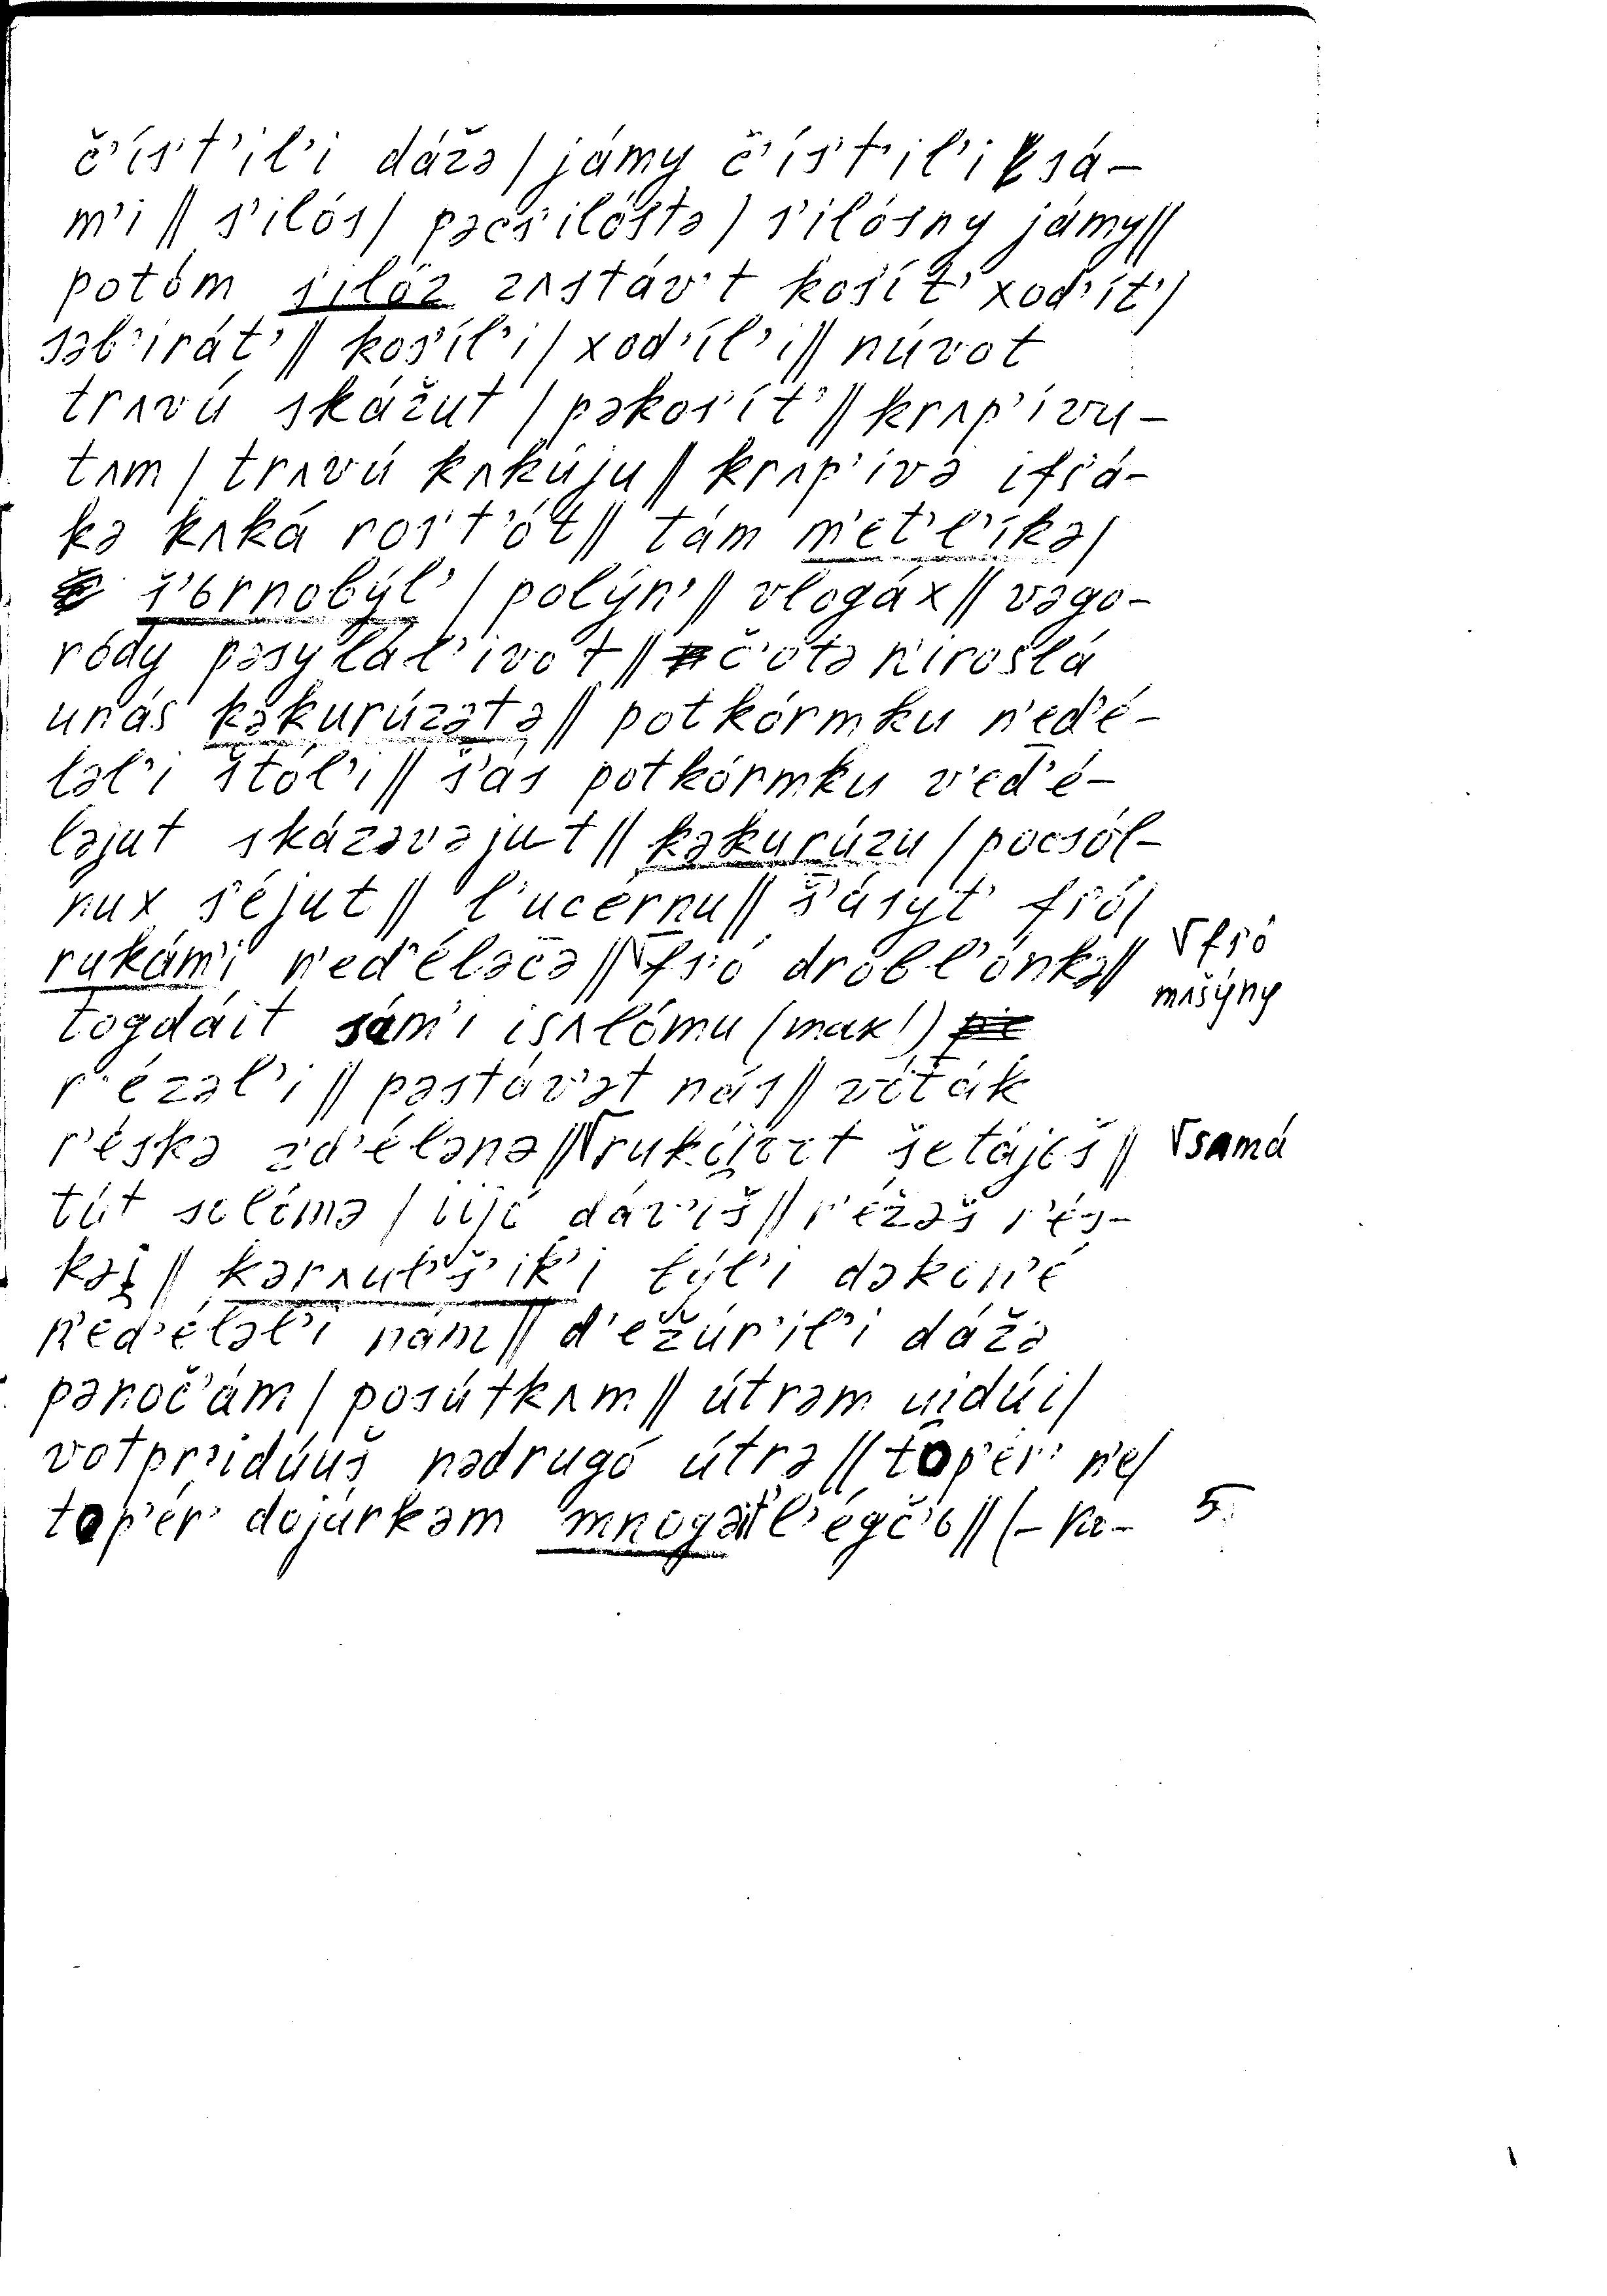 č’ís’t’il’i dážə / jámy č’ís’t’il’i ksá-
m’i // s’ilós / pəcs’ilóstə / s’ilósny jámy //
potóm s’ilóz zʌstáv’t kos’ít’ xod’ít’ /
səb’irát’ // kos’íl’i / xod’íl’i // núvot
trʌvú skážut / pəkos’ít’ // krʌp’ívu-
tʌm / trʌvú kʌkúju // krʌp’ívə ifs’á-
kə kʌká ros’t’ót // tám m’et’l’íkə /
š’ornobýl’ / polýn’ // vlogáx // vəgo-
ródy pəsyľál’i vot // č’otə n’iroslá
unás kəkurúzətə // potkórmku n’ed’é-
ləl’i štól’i // š’ás potkórmku v’ed’é-
ləjut skázəvəjut // kəkurúzu / pocsól-
nux s’éjut // l’ucérnu // š’ásyt’ fs’ó /
rukám’i n’ed’éləcə // √ fs’ó drobl’ónkə //
√ fs’ó
mʌšýny
togdáit sám’i isʌlómu (mak!)
r’ézəl’i // pəstáv’ət nás // vót ták
r’éskə zd’élənə // √ rukój vot šetáješ //
√ samá
tút solómə / ijó dáv’iš // r’éžəš r’és-
kəj // kərʌul’š’ik’i týl’i dəkon’é
n’ed’éləl’i nám // d’ežúr’il’i dážə
pənoč’ám / posútkʌm // útrəm ujdúi /
votpr’idúuš nədrugó útrə // top’ér’ n’e /
top’ér’ dojárkəm mnogəit’l’égč’o // (– Ka-
5.